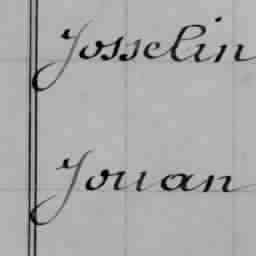 Josselin
Jouan